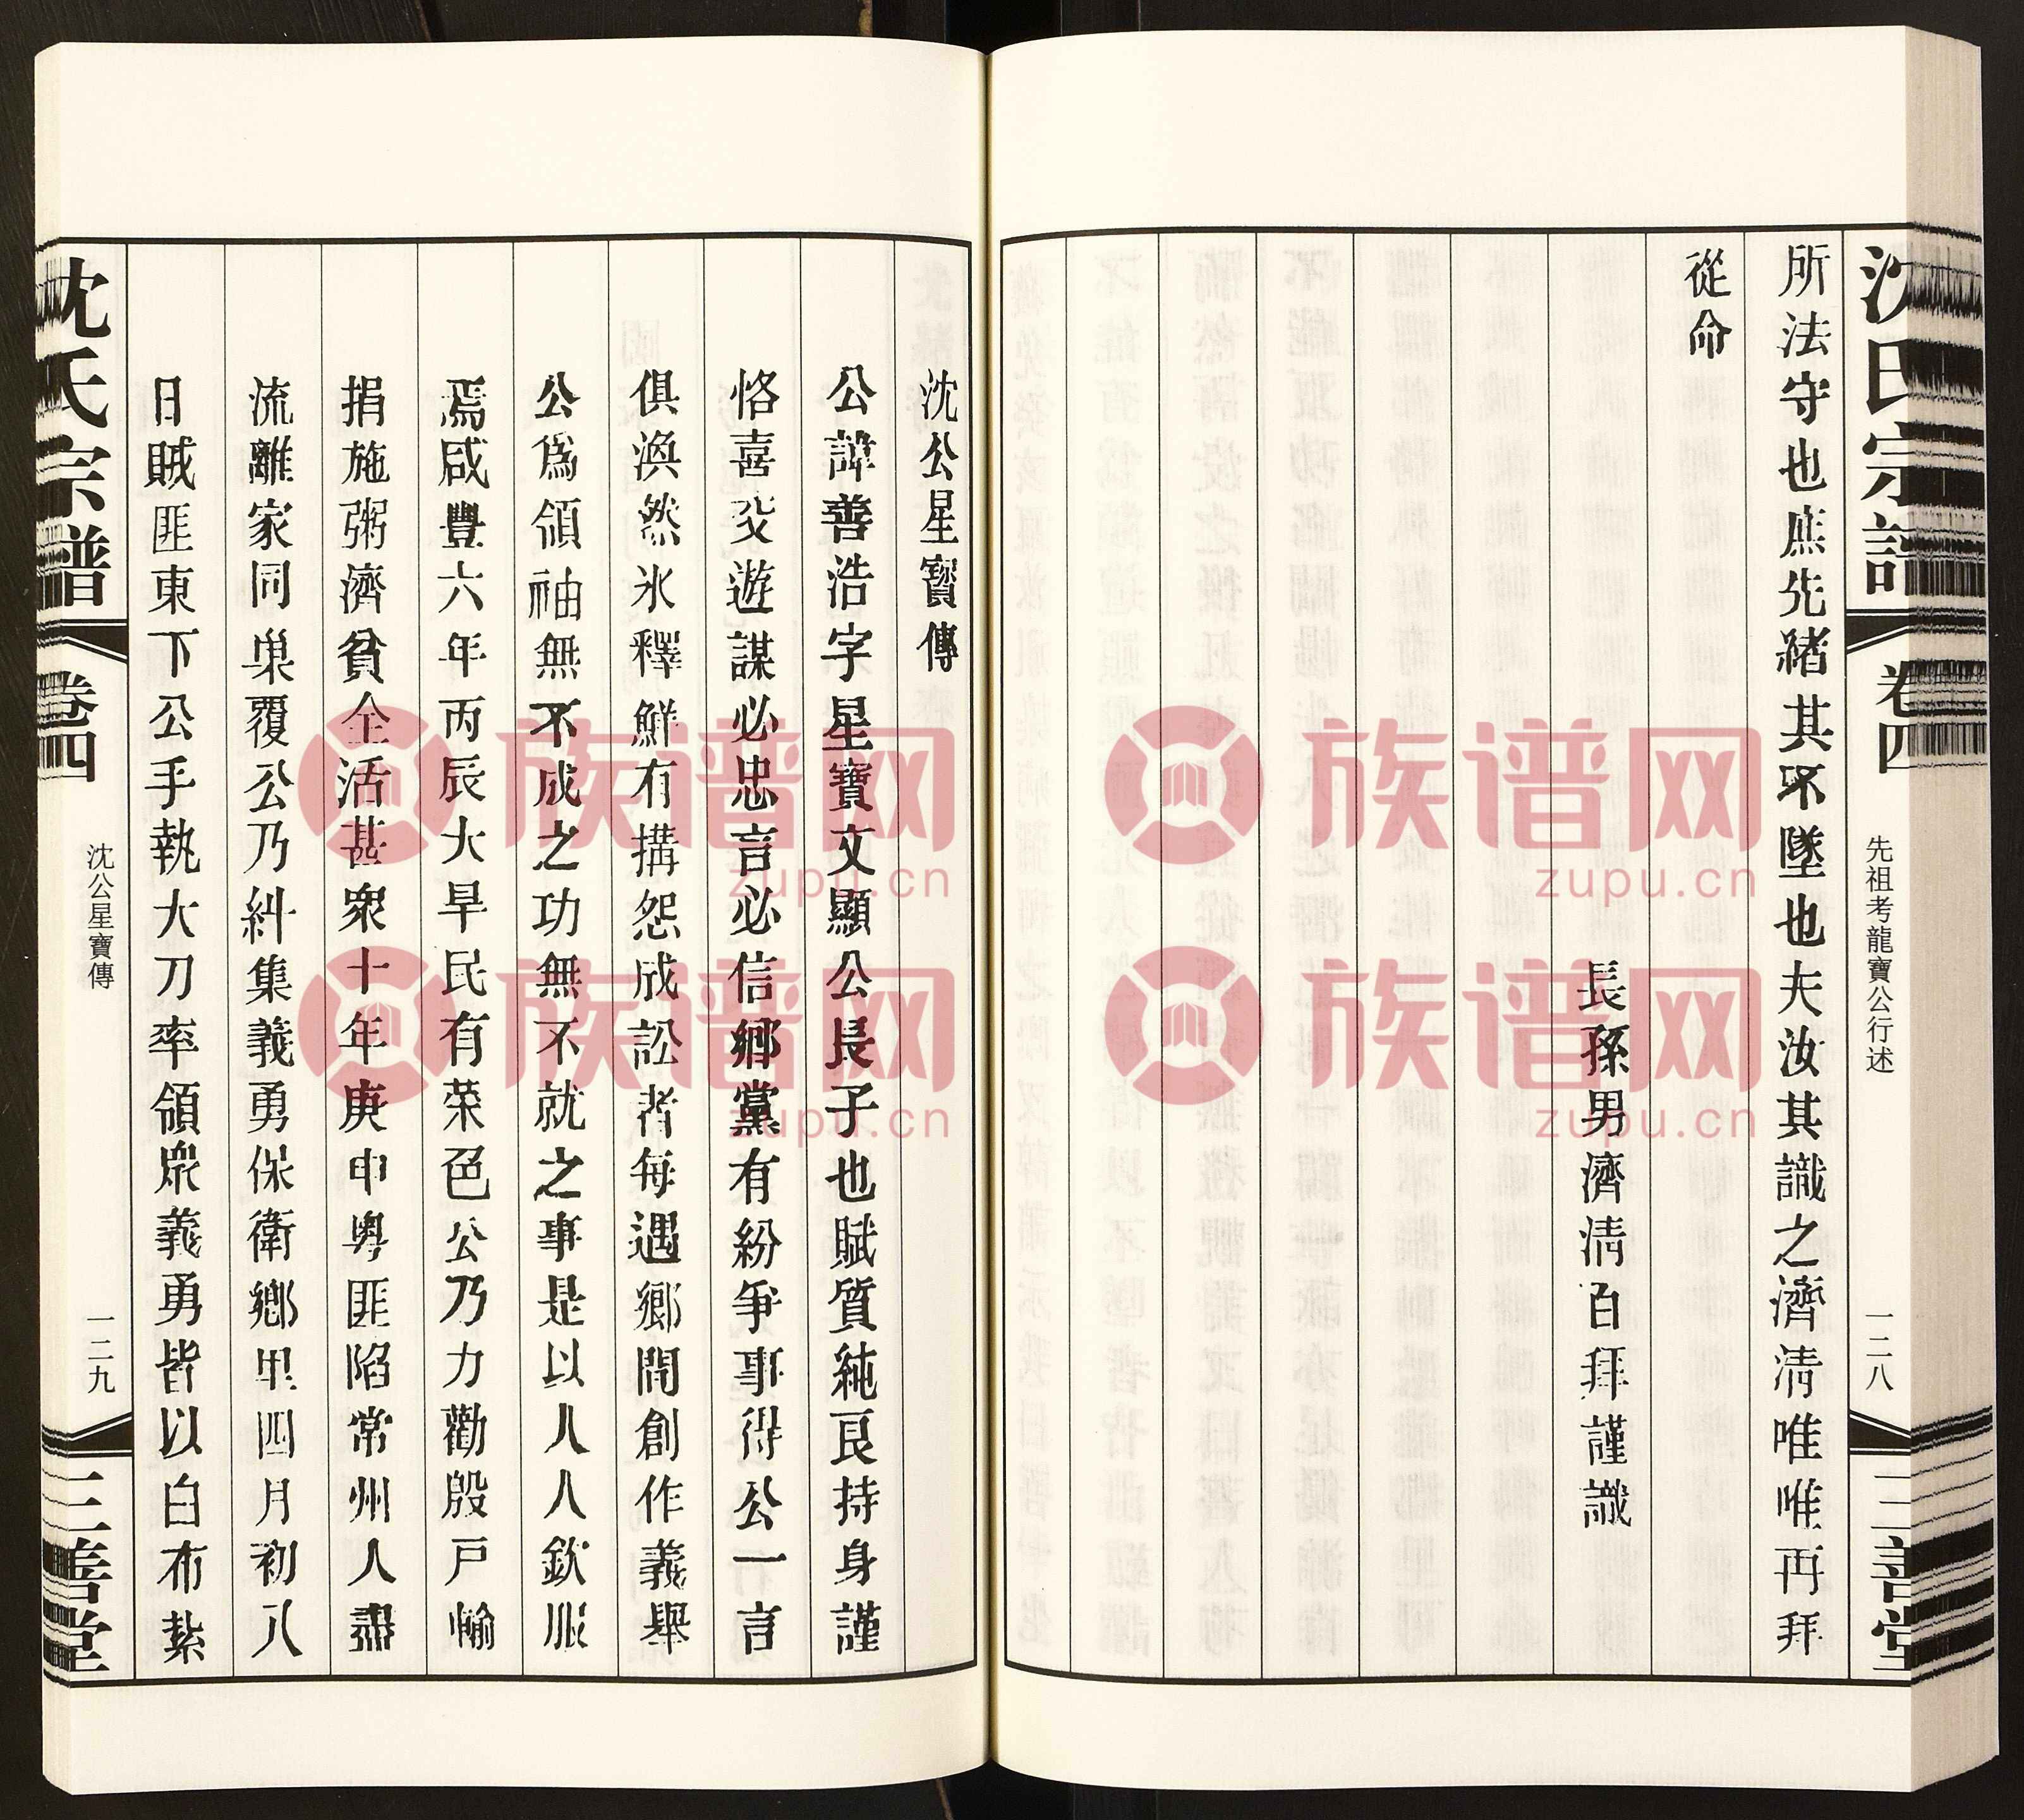 沈氏宗譜
卷四
先祖考龍寶公行述
一二八
三善堂
所法守也庶先緒其不墜也夫汝其識之濟清唯唯再拜
從命
長孫男濟清百拜謹識
沈公星寳傳
公諱善浩字星寶文顯公長子也賦質純良持身謹
恪喜交遊謀必忠言必信鄉黨有紛爭事得公一言
俱渙然氷釋鮮有搆怨成訟者每遇鄉閭創作義舉
公爲領袖無不成之功無不就之事是以人人欽服
焉咸豐六年丙辰大旱民有菜色公乃力勸殷戶輸
捐施粥濟貧全活甚衆十年庚申粤匪陷常州人盡
流離家同巢覆公乃糾集義勇保衛鄉里四月初八
日賊匪東下公手執大刀率領眾義勇皆以白布紮
沈氏宗譜
卷四
沈公星寶傳
一二九
三善堂
族谱网
zupu.cn
族谱网
zupu.cn
族谱网
zupu.cn
族谱网
zupu.cn